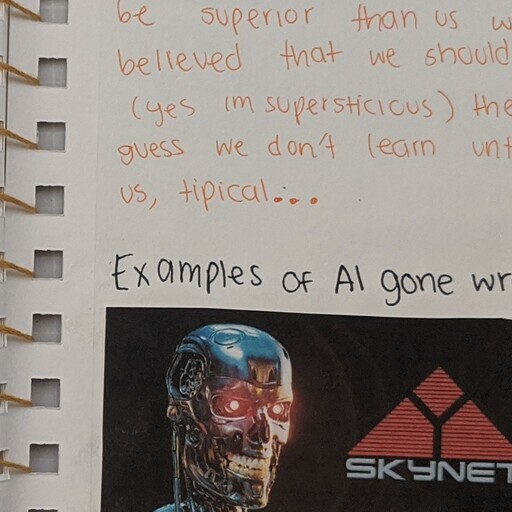 be superior than us
believed that we should
(yes im supersticious) the
guess we don't learn
us, tipical...
Examples of AI gone
SKYNET